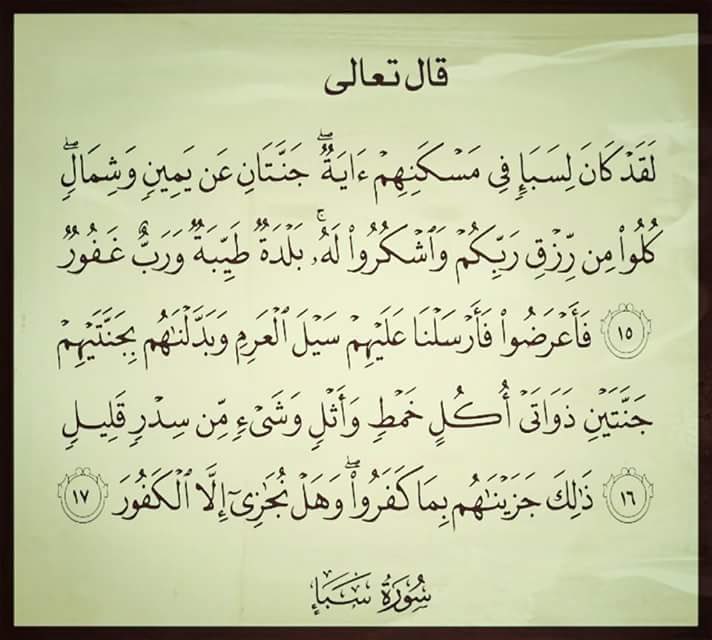 قال تعالى
لَقَدْ كَانَ لِسَبَإٍ فِي مَسْكَنِهِمْ ءَايَةٌ ۖ جَنَّتَانِ عَن يَمِينٍ وَشِمَالٍ ۖ
كُلُوا۟ مِن رِّزْقِ رَبِّكُمْ وَٱشْكُرُوا۟ لَهُۥ ۚ بَلْدَةٌ طَيِّبَةٌ وَرَبٌّ غَفُورٌ
١٥ فَأَعْرَضُوا۟ فَأَرْسَلْنَا عَلَيْهِمْ سَيْلَ ٱلْعَرِمِ وَبَدَّلْنَٰهُم بِجَنَّتَيْهِمْ
جَنَّتَيْنِ ذَوَاتَىْ أُكُلٍ خَمْطٍ وَأَثْلٍ وَشَىْءٍ مِّن سِدْرٍ قَلِيلٍ
١٦ ذَٰلِكَ جَزَيْنَٰهُم بِمَا كَفَرُوا۟ ۖ وَهَلْ نُجَٰزِىٓ إِلَّا ٱلْكَفُورَ ١٧
سُورَةُ سَبَإٍ